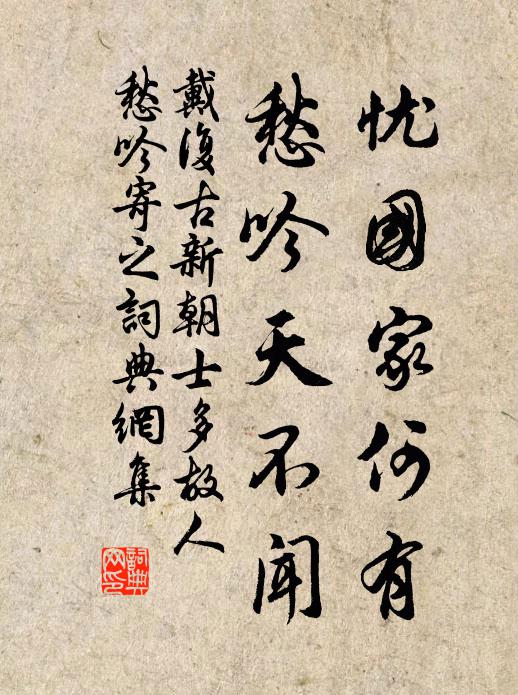 忧國家何有
愁吟天不闻
戴復古新朝士多故人
愁吟寄之詞典網集
詞典
网印